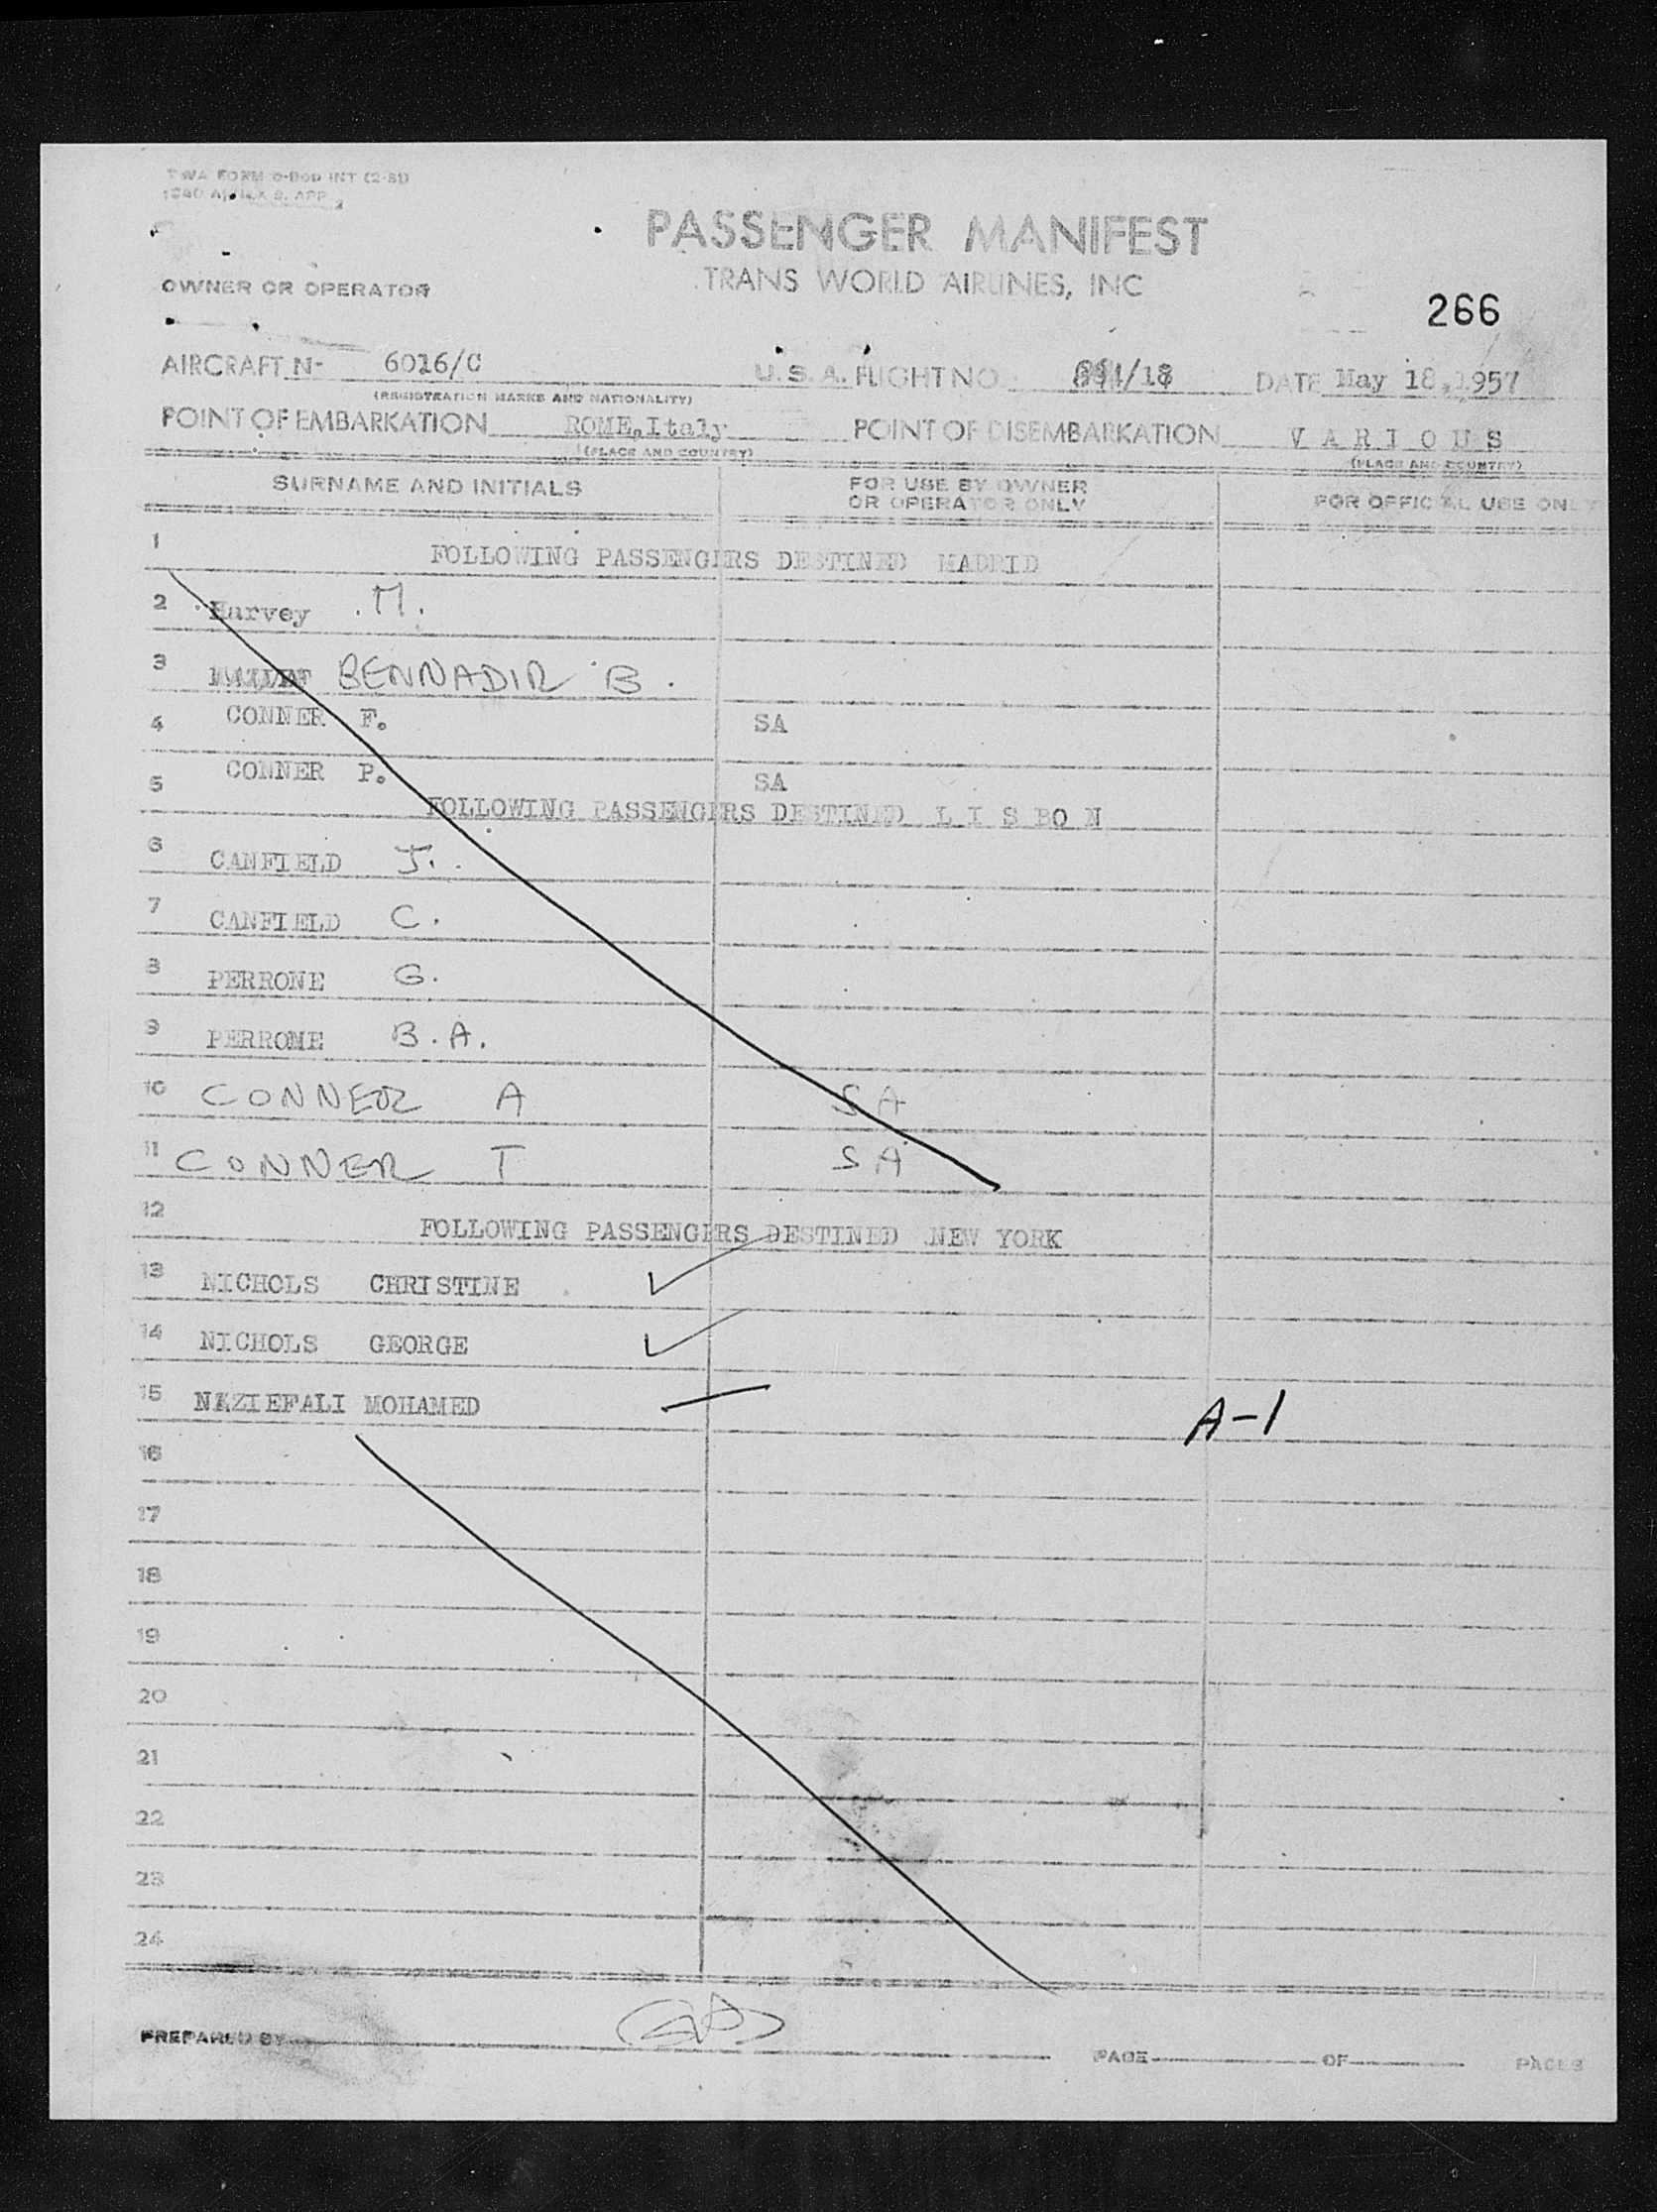 TWA FORM INT
PASSENGER MANIFEST
TRANS WORLD AIRLINES, INC
OWNER OR OPERATOR
266
AIRCRAFT N- 6026/C U.S.A. FLIGHT NO /18 DATE May 18, 1957
(REGISTRATION MARKS AND NATIONALITY)
POINT OF EMBARKATION ROME, Italy POINT OF DISEMBARKATION V A R I O U S
(PLACE AND COUNTRY) (PLACE AND COUNTRY)
SURNAME AND INITIALS FOR USE BY OWNER OR OPERATOR ONLY FOR OFFICIAL USE ONLY
1 FOLLOWING PASSENGERS DESTINED MADRID
2 Harvey M.
3 BENNADIR B.
4 CONNER F. SA
5 CONNER P. SA
FOLLOWING PASSENGERS DESTINED L I S BO N
6 CANFIELD J.
7 CANFIELD C.
8 PERRONE G.
9 PERRONE B.A.
10 CONNER A SA
11 CONNER T SA
12 FOLLOWING PASSENGERS DESTINED NEW YORK
13 NICHOLS CHRISTINE
14 NICHOLS GEORGE
15 NAZIEFALI MOHAMED A-1
16
17
18
19
20
21
22
23
24
PREPARED BY
PAGE OF PAGES